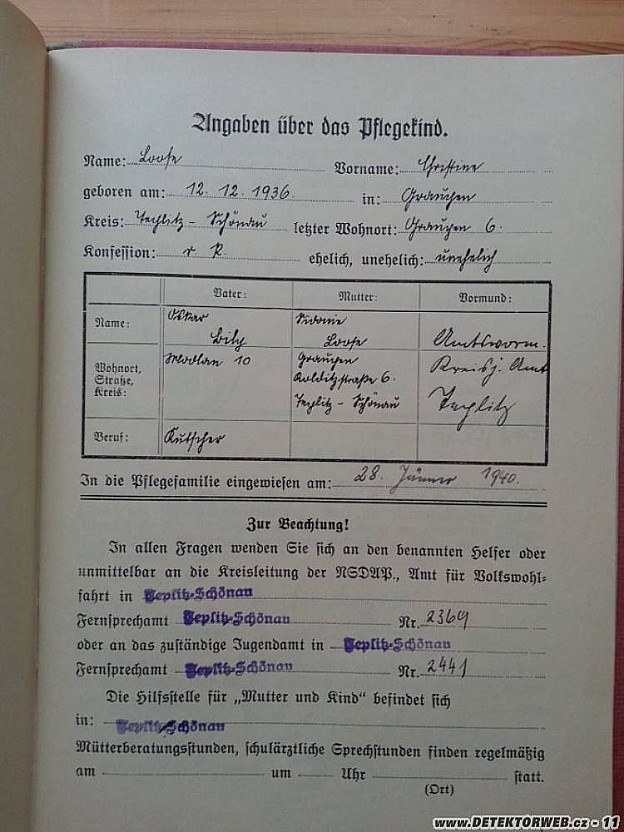 Angaben über das Pflegekind.
Name: Loose Vorname: Christine
geboren am: 12. 12. 1936 in: Graupen
Kreis: Teplitz - Schönau letzter Wohnort: Graupen 6.
Konfession: r. k. ehelich, unehelich: unehelich
Vater: Mutter: Vormund:
Name: Oskar Bily Sidonie Loose Amtsvorm.
Wohnort, Straße, Kreis: Modlan 10 Graupen Kolditzstraße 6. Teplitz - Schönau Kreisj. Amt Teplitz
Beruf: Kutscher
In die Pflegefamilie eingewiesen am: 28. Jänner 1940.
Zur Beachtung!
In allen Fragen wenden Sie sich an den benannten Helfer oder
unmittelbar an die Kreisleitung der NSDAP., Amt für Volkswohl-
fahrt in Teplitz-Schönau
Fernsprechamt Teplitz-Schönau Nr. 2369
oder an das zuständige Jugendamt in Teplitz-Schönau
Fernsprechamt Teplitz-Schönau Nr. 2441
Die Hilfsstelle für „Mutter und Kind" befindet sich
in: Teplitz-Schönau
Mütterberatungsstunden, schulärztliche Sprechstunden finden regelmäßig
am um Uhr statt.
(Ort)
www.DETEKTORWEB.cz - 11